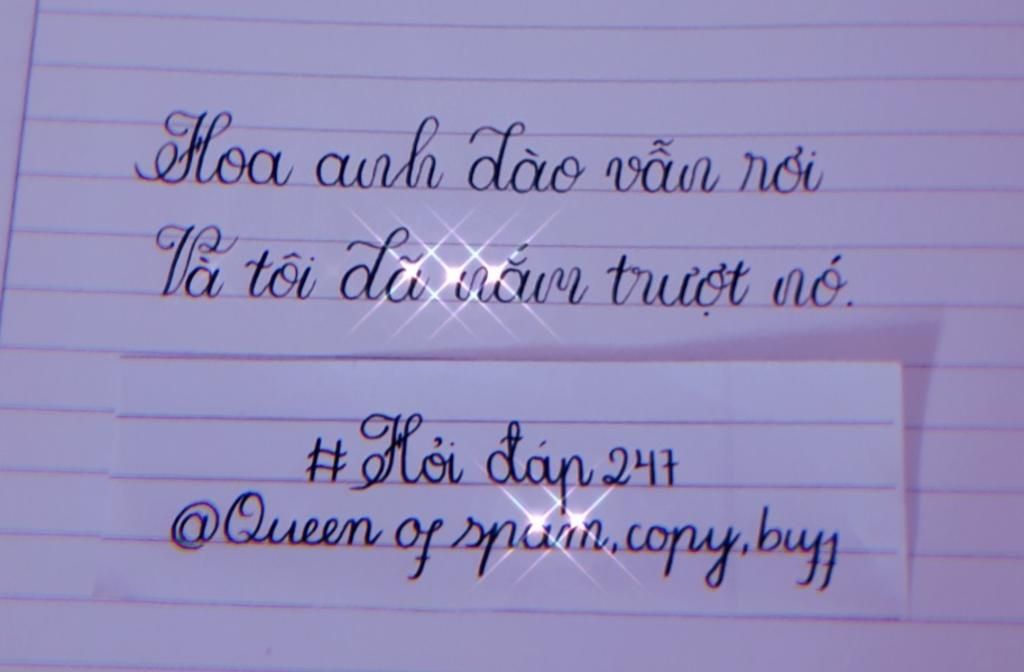 Hoa anh đào vẫn rơi
Và tôi đã nắm trượt nó.
#Hỏi đáp 247
@Queen of spam,copy,buff